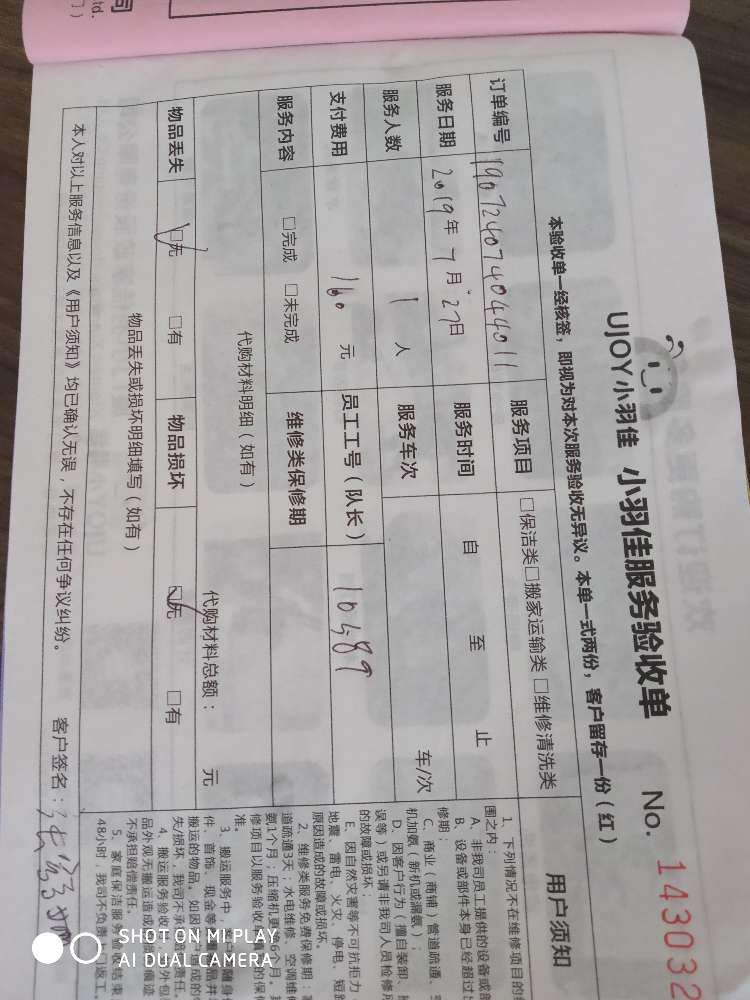 UJOY小羽佳 小羽佳服务验收单 No. 143032
本验收单一经核签，即视为对本次服务验收无异议。本单一式两份，客户留存一份（红）
订单编号 19072407404011 服务项目 □保洁类□搬家运输类 □维修清洗类
服务日期 2019年 7月 27日 服务时间 自 至 止
服务人数 1 人 服务车次 车/次
支付费用 160 元 员工工号（队长） 10489
服务内容 □完成 □未完成 维修类保修期
代购材料明细（如有）
代购材料总额： 元
物品丢失 □无 □有 物品损坏 □无 □有
物品丢失或损坏明细填写（如有）
本人对以上服务信息以及《用户须知》均已确认无误，不存在任何争议纠纷。 客户签名：
用户须知
1、下列情况不在维修项目的
围之内：
A、非我司员工提供的设备或部
B、设备或部件本身已经超过
修期；
C、商业（商铺）管道疏通、
机加氨（新机或漏氨）；
D、因客户行为（擅自装卸、
误等）或另请非我司人员检修
的故障或损坏；
E、因自然灾害等不可抗拒力
地震、雷电、火灾、停电、短
原因造成的故障或损坏。
2、维修类服务免费保修期：
道疏通3天；水电维修、空调维
氨1个月；压缩机更 6个月。
修项目以服务验收 的保
准。
3、搬运服务中， 随身
件、首饰、现金等 品并
搬运的物品。如因 造成的
失/损坏，我司不承 责任。
4、搬运服务验收 外包
品外观无搬运造成 痕迹
不承担赔偿责任。
5、家庭保洁服务 结束
48小时，我司不负责 返工。
SHOT ON MI PLAY
AI DUAL CAMERA